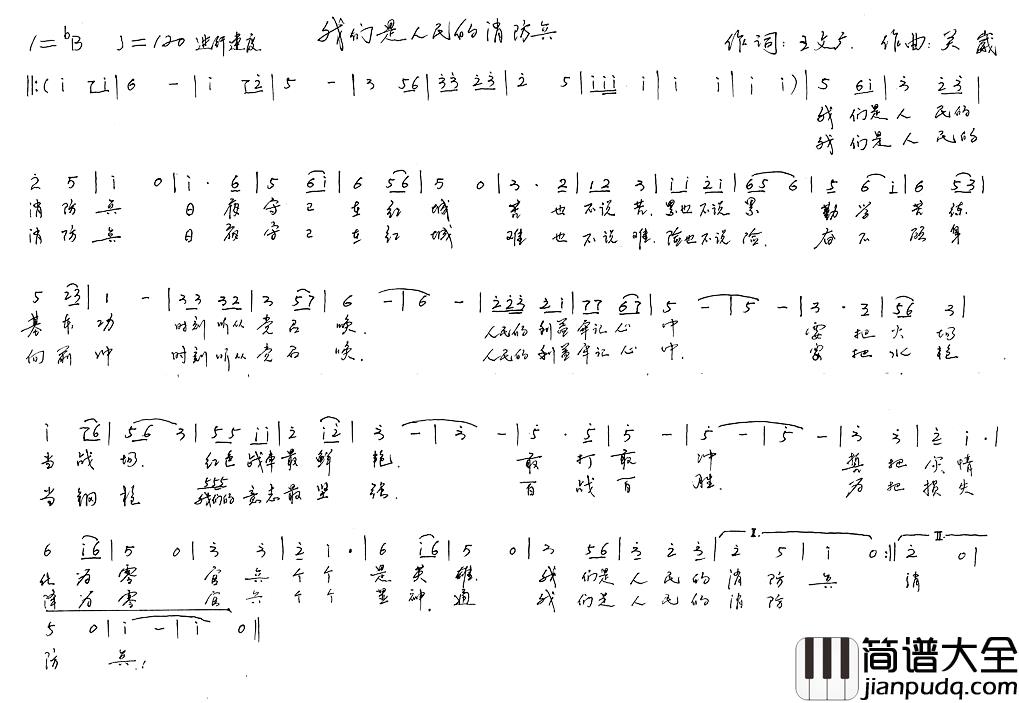 我们是人民的消防兵
1=bB ♩=120 进行速度 作词:王文 作曲:关 崴
‖:(i 7i|6 -|i 7i|5 -|3 56|33 23|2 5|iii i|i i|i i)|5 6i|3 23|
我们是人民的
我们是人民的
2 5|i 0|i· 6|5 6i|6 56|5 0|3· 2|12 3|ii 2i|65 6|5 6 i|6 53|
消防兵 日夜守卫在红城 苦也不说苦.累也不说累 勤学苦练
消防兵 日夜守卫在红城 难也不说难.险也不说险. 奋不顾身
5 23|1 -|33 32|3 57|6 -|6 -|223 2i|77 67|5 -|5 -|3· 2|56 3|
基本功 时刻听从党召唤. 人民的利益牢记心中 要把火场
向前冲 时刻听从党召唤. 人民的利益牢记心中. 要把水枪
i 76|56 3|55 ii|2 i2|3 -|3 -|5· 5|5 -|5 -|5 -|3 3|2 i·|
当战场. 红色战车最鲜艳. 敢打敢冲 真把灾情
555
当钢枪 我们的意志最坚强. 百战百胜. 为把损失
6 i6|5 0|3 3|2 i·|6 i6|5 0|3 56|3 23|2 5|i 0:‖2 0|
I. II.
化为零 官兵个个是英雄. 我们是人民的消防兵 消
降为零 官兵个个显神通 我们是人民的消防
5 0|i -|i 0‖
防兵!
简谱大全
jianpudq.com